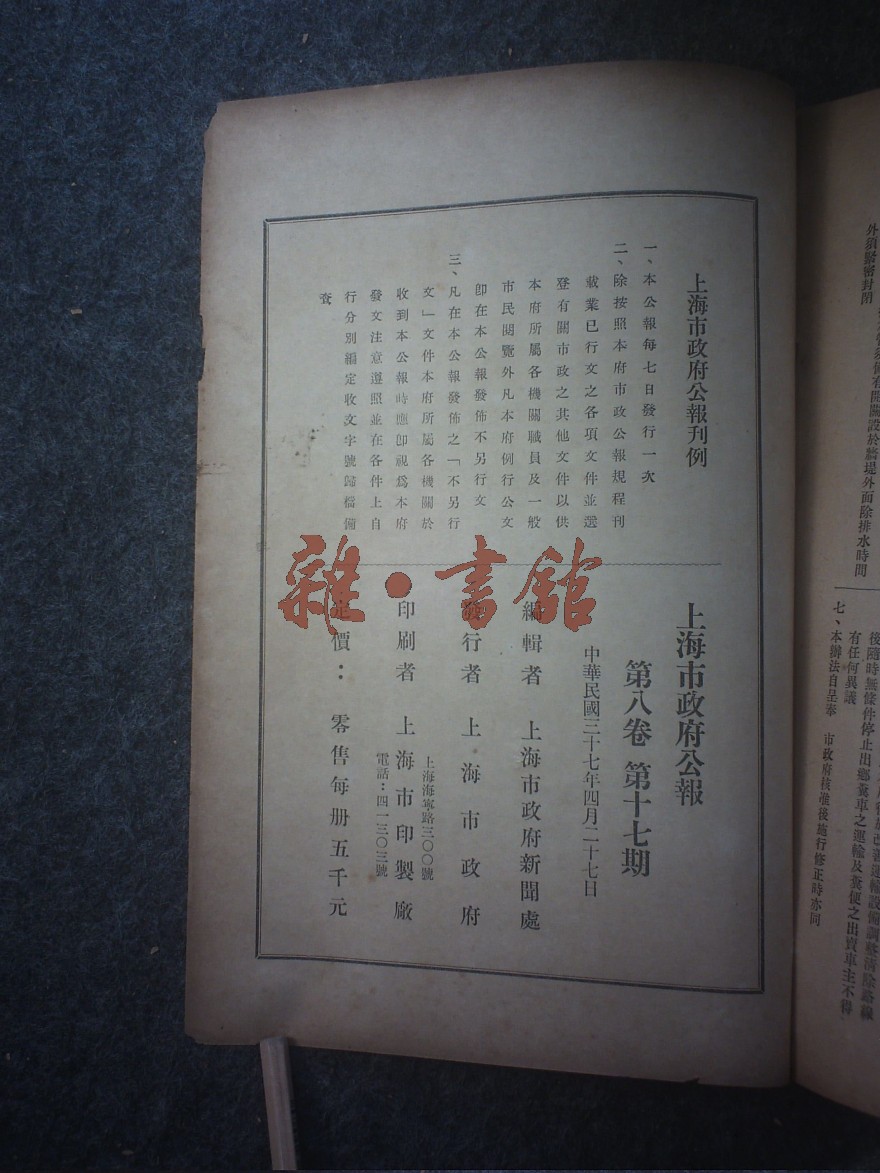 上海市政府公報刊例
一、本公報每七日發行一次
二、除按照本府市政公報規程刊
載業已行文之各項文件並選
登有關市政之其他文件以供
本府所屬各機關職員及一般
市民閱覽外凡本府例行公文
卽在本公報發佈不另行文
三、凡在本公報發佈之「不另行
文」文件本府所屬各機關於
收到本公報時應卽視爲本府
發文注意遵照並在各件上自
行分別編定收文字號歸檔備
查
上海市政府公報
第八卷 第十七期
中華民國三十七年四月二十七日
編輯者 上海市政府新聞處
發行者 上海市政府
印刷者 上海市印製廠
上海海寧路三〇〇號
電話：四一三〇三號
定價：零售每册五千元
雜·書館
外須緊密封閉
有開關設於牆堤外面除排水時間
後隨時無條件停止出鄉糞車之運輸及糞便之出賣車主不得
有任何異議
七、本辦法自呈奉 市政府核准後施行修正時亦同